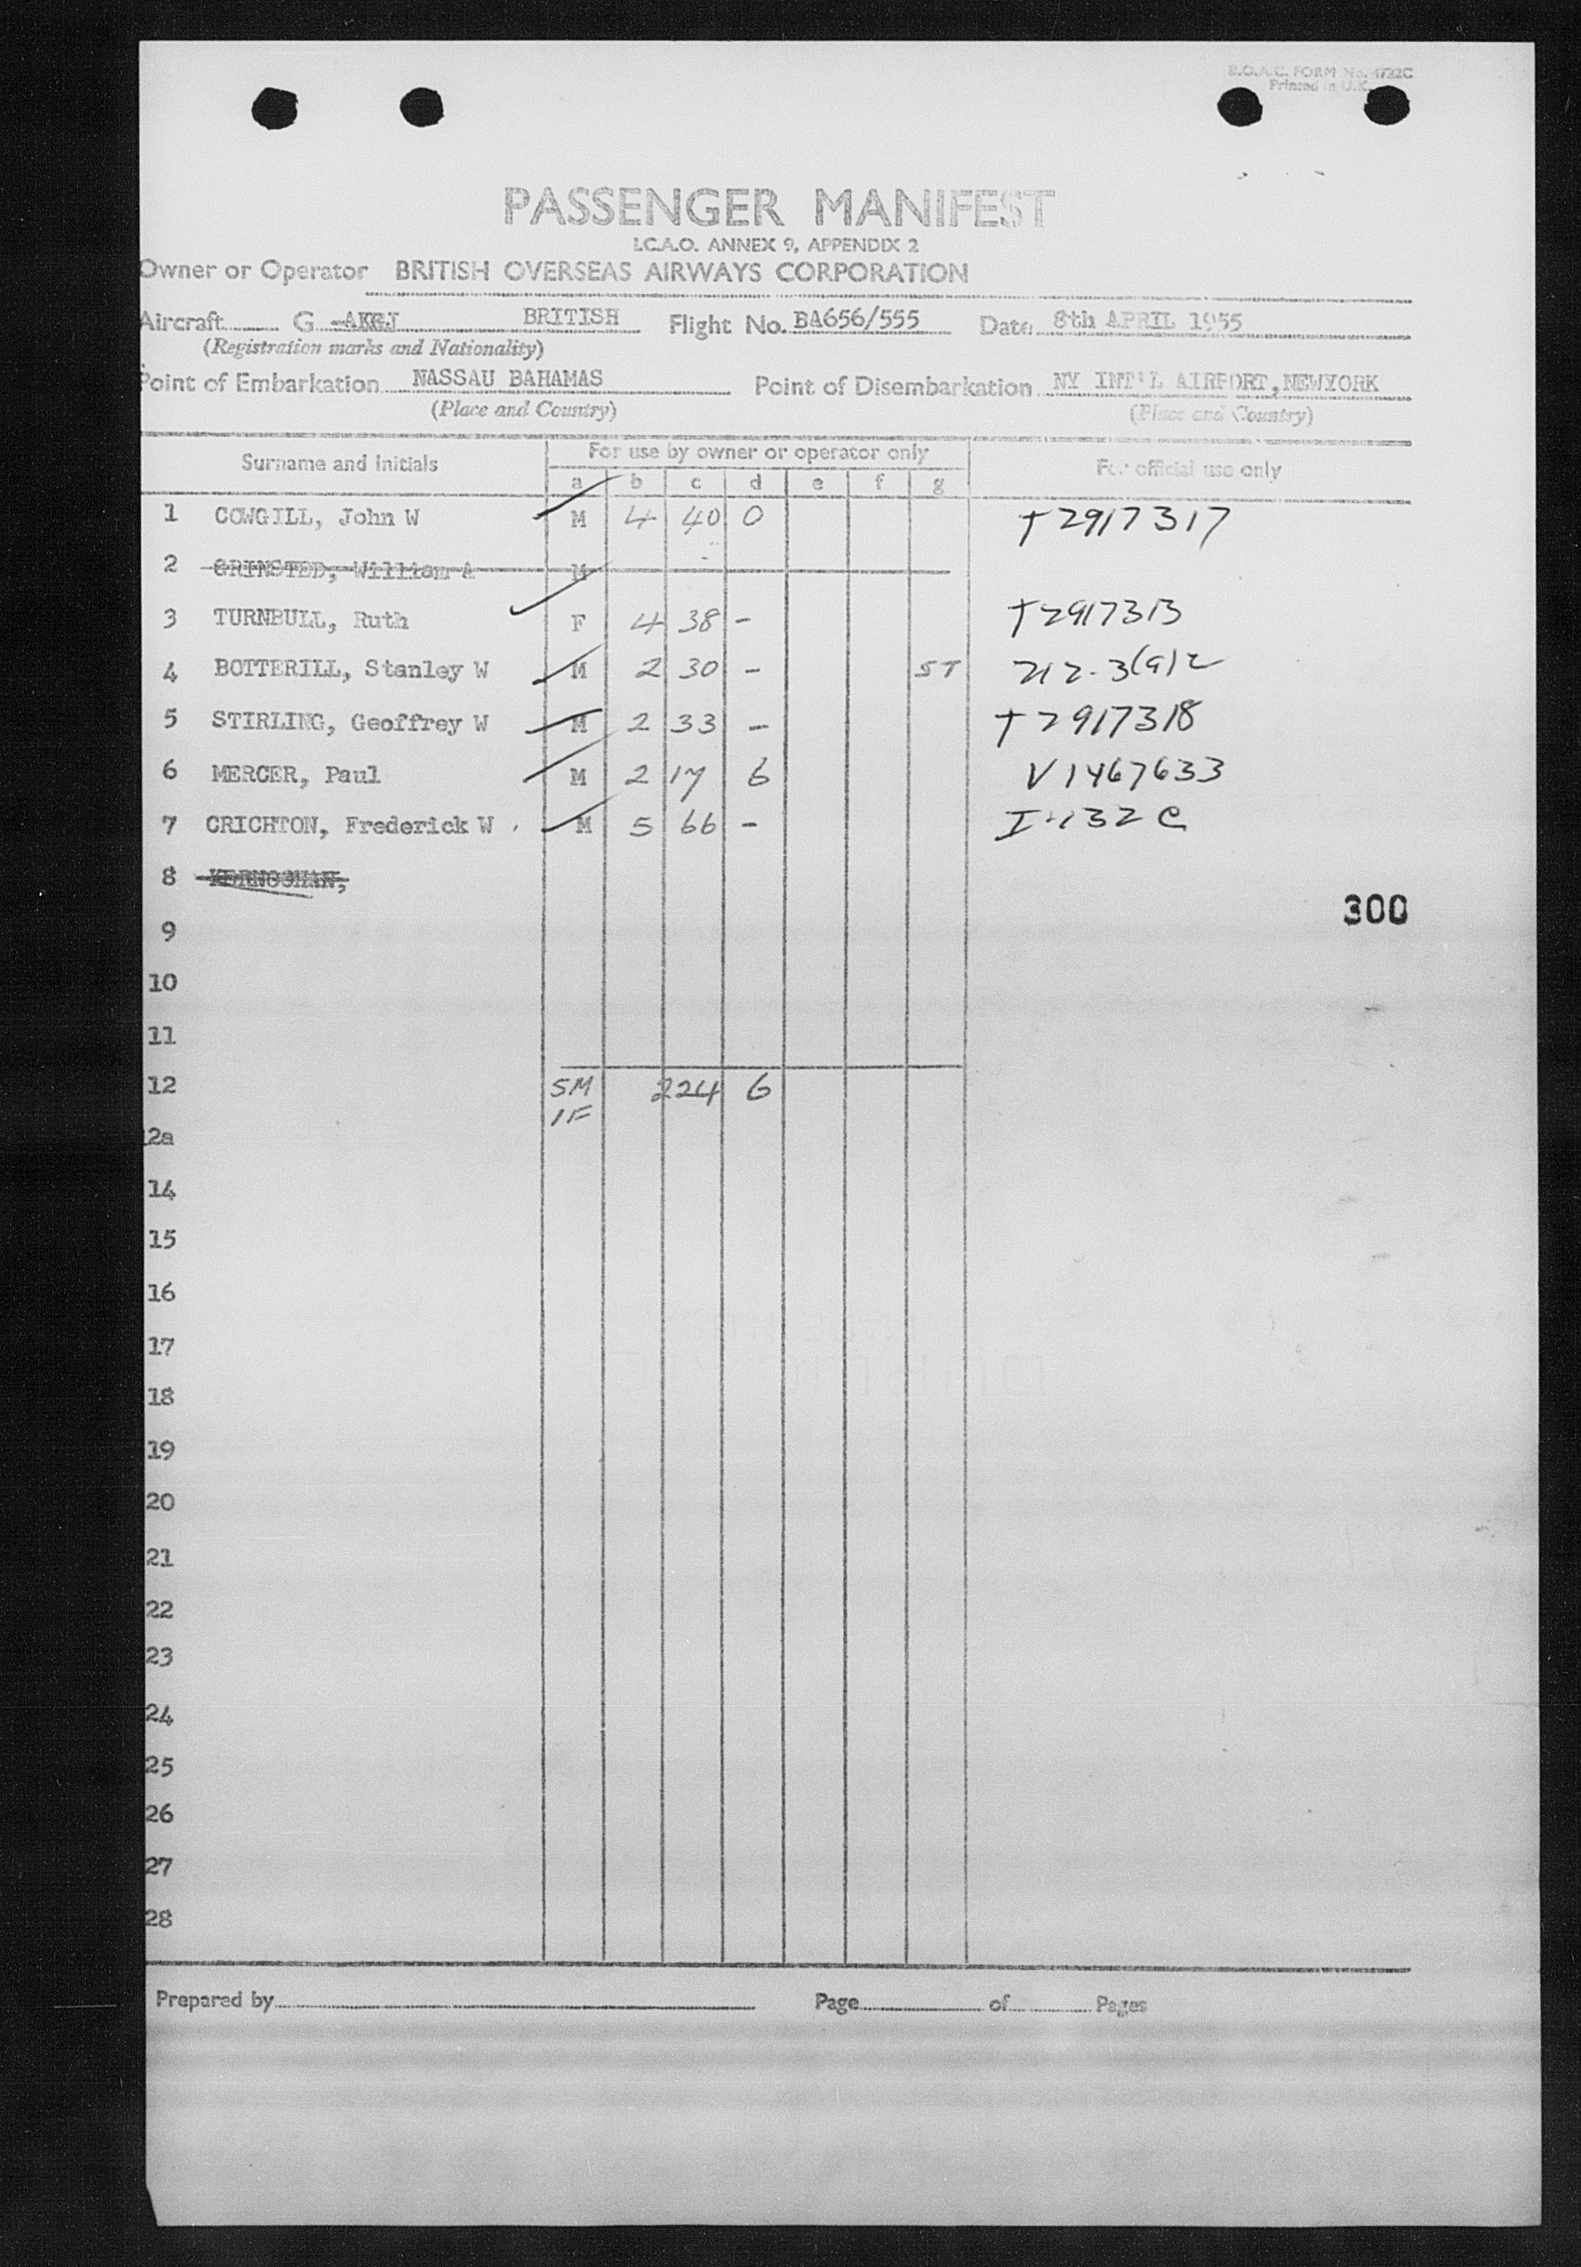 B.O.A.C. FORM No. 4722C
Printed in U.K.
PASSENGER MANIFEST
I.C.A.O. ANNEX 9, APPENDIX 2
Owner or Operator BRITISH OVERSEAS AIRWAYS CORPORATION
Aircraft G BRITISH Flight No. BA656/555 Date 8th APRIL 1955
(Registration marks and Nationality)
Point of Embarkation NASSAU BAHAMAS Point of Disembarkation NY INT'L AIRPORT, NEWYORK
(Place and Country) (Place and Country)
Surname and Initials For use by owner or operator only For official use only
a b c d e f g
1 COWGILL, John W M 4 40 0 T2917317
2 GRINSTED, William A M
3 TURNBULL, Ruth F 4 38 -
4 BOTTERILL, Stanley W M 2 30 - ST 212.3(a)2
5 STIRLING, Geoffrey W M 2 33 - T2917318
6 MERCER, Paul M 2 17 6 V1467633
7 CRICHTON, Frederick W M 5 66 -
8 KERNOCHAN,
300
9
10
11
12 5M 224 6
1F
12a
14
15
16
17
18
19
20
21
22
23
24
25
26
27
28
Prepared by Page of Pages